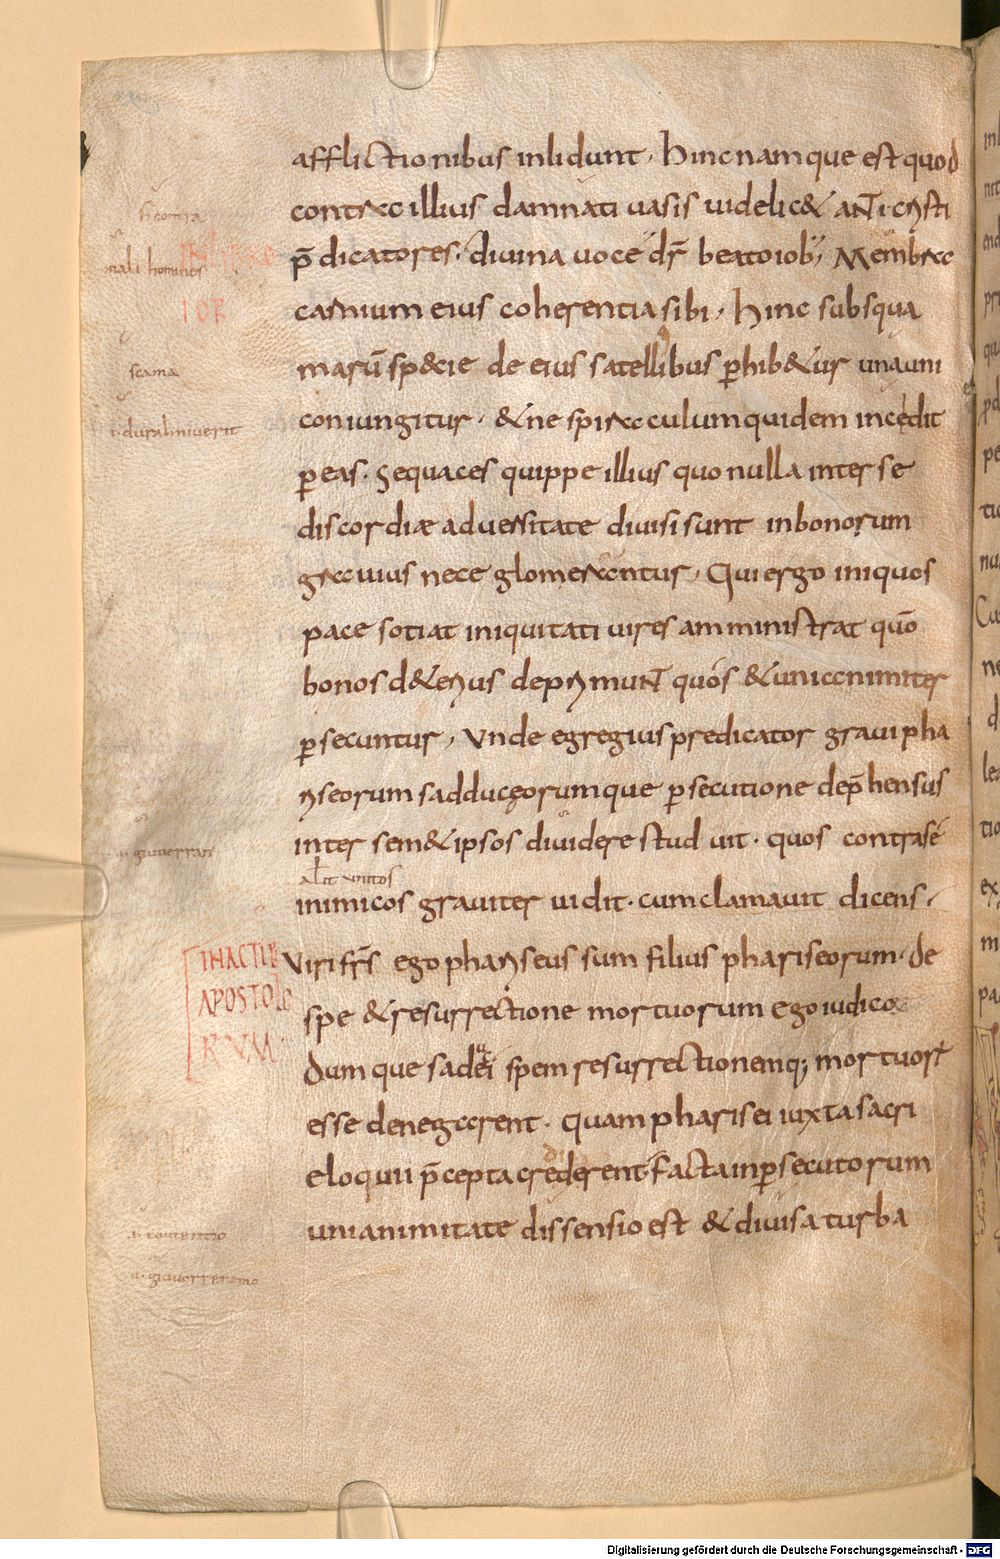 afflictionibus inlidunt, Hinc namque est quod
contra illius damnati uasis uidelic& anti cristi
p̄dicatores, diuina uoce dr̄ beato iob, Membra
carnium eius coherentia sibi, Hinc sub squa
marū sp&cie de eius satellibus perhib&ur una uni
coniungitur, &ne spiraculum quidem incedit
per eas. Sequaces quippe illius quo nulla inter se
discordiæ aduersitate diuisi sunt in bonorum
grauius nece glomerantur, Qui ergo iniquos
pace sotiat iniquitati uires amministrat quō
bonos d&erius deprimunt quos &unianimiter
persecuntur, Vnde egregius predicator graui pha
riseorum sadducęorumque persecutione dep̄hensus
inter sem&ipsos diuidere studuit. quos contra se
alit unitos
inimicos grauiter uidit. cum clamauit dicens,
Viri fr̄s ego phariseus sum filius phariseorum. de
spe &resurrectione mortuorum ego iudicor
Dumque saducei spem resurrectionemq; mortuorum
esse denegarent. quam pharisei iuxta sacri
eloquii p̄cepta crederent. facta in persecutorum
unianimitate dissensio est &diuisa turba
mali homines
IOB
scama
IN ACTIB
APOSTOLO
RVM